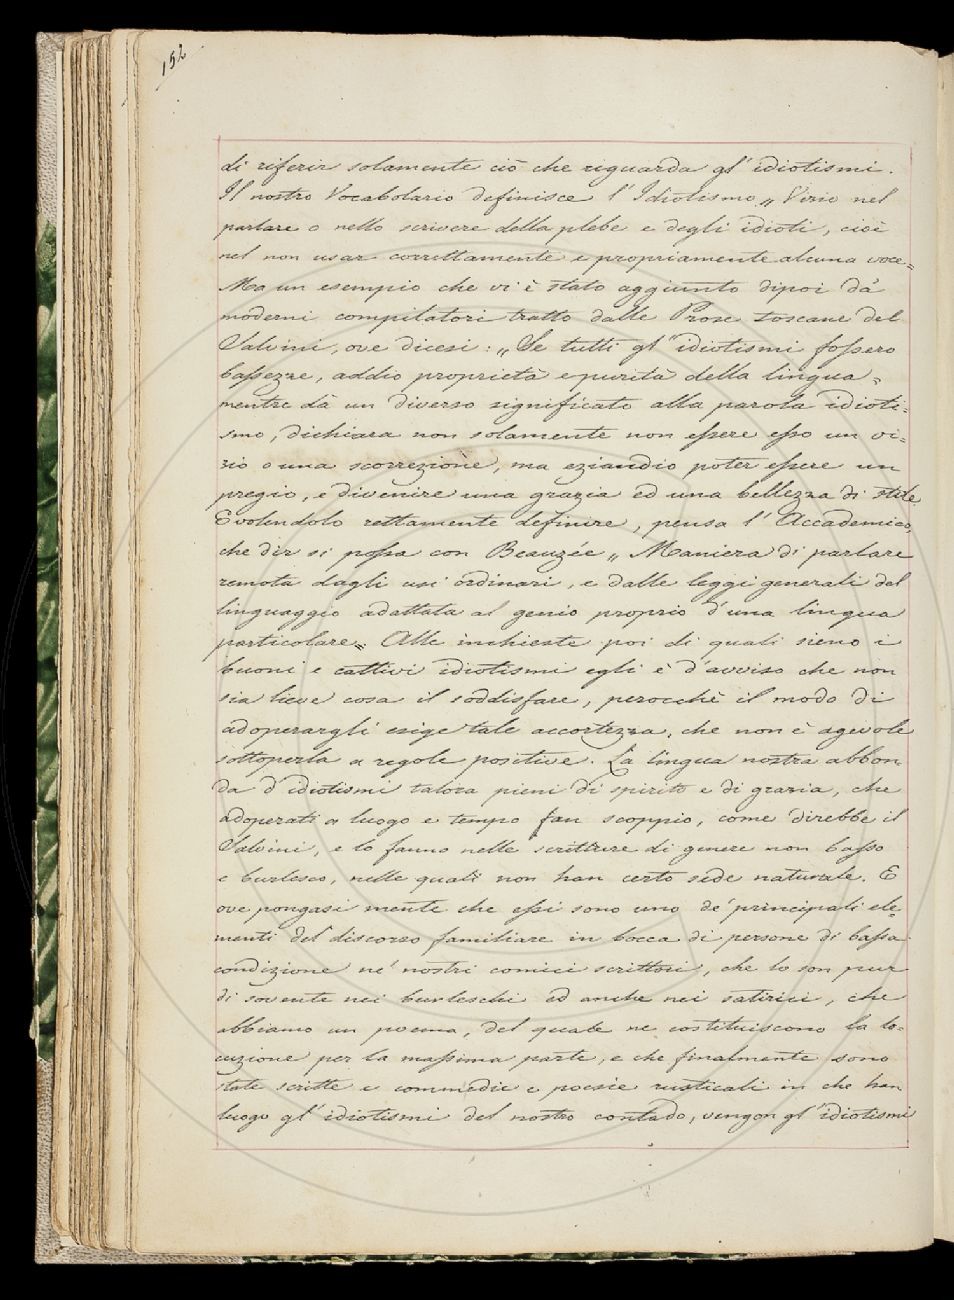 152
di riferir solamente ciò che riguarda gl' idiotismi.
Il nostro Vocabolario definisce l' Idiotismo „ Vizio nel
parlare o nello scrivere della plebe e degli idioti, cioè
nel non usar correttamente e propriamente alcuna voce=
Ma un esempio che vi è stato aggiunto dipoi da'
moderni compilatori tratto dalle Prose toscane del
Salvini, ove dicesi: „ Se tutti gl' idiotismi fossero
bassezze, addio proprietà e purità della lingua =
mentre dà un diverso significato alla parola idioti=
smo, dichiara non solamente non essere esso un vi=
zio o una scorrezione, ma eziandio poter essere un
pregio, e divenire una grazia ed una bellezza di stile.
E volendolo rettamente definire, pensa l' Accademico,
che dir si possa con Beauzée „ Maniera di parlare
remota dagli usi ordinari, e dalle leggi generali del
linguaggio adattata al genio proprio d' una lingua
particolare= Alle inchieste poi di quali sieno i
buoni e cattivi idiotismi egli è d' avviso che non
sia lieve cosa il soddisfare, perocchè il modo di
adoperargli esige tale accortezza, che non è agevole
sottoporla a regole positive. La lingua nostra abbon
da d' idiotismi talora pieni di spirito e di grazia, che
adoperati a luogo e tempo fan scoppio, come direbbe il
Salvini, e lo fanno nelle scritture di genere non basso
e burlesco, nelle quali non han certo sede naturale. E
ove pongasi mente che essi sono uno de' principali ele=
menti del discorso familiare in bocca di persone di bassa
condizione ne' nostri comici scrittori, che lo son pur
di sovente nei burleschi ed anche nei satirici, che
abbiamo un poema, del quale ne costituiscono la lo=
cuzione per la massima parte, e che finalmente sono
state scritte e commedie e poesie rusticali in che han
luogo gl' idiotismi del nostro contado, vengon gl' idiotismi